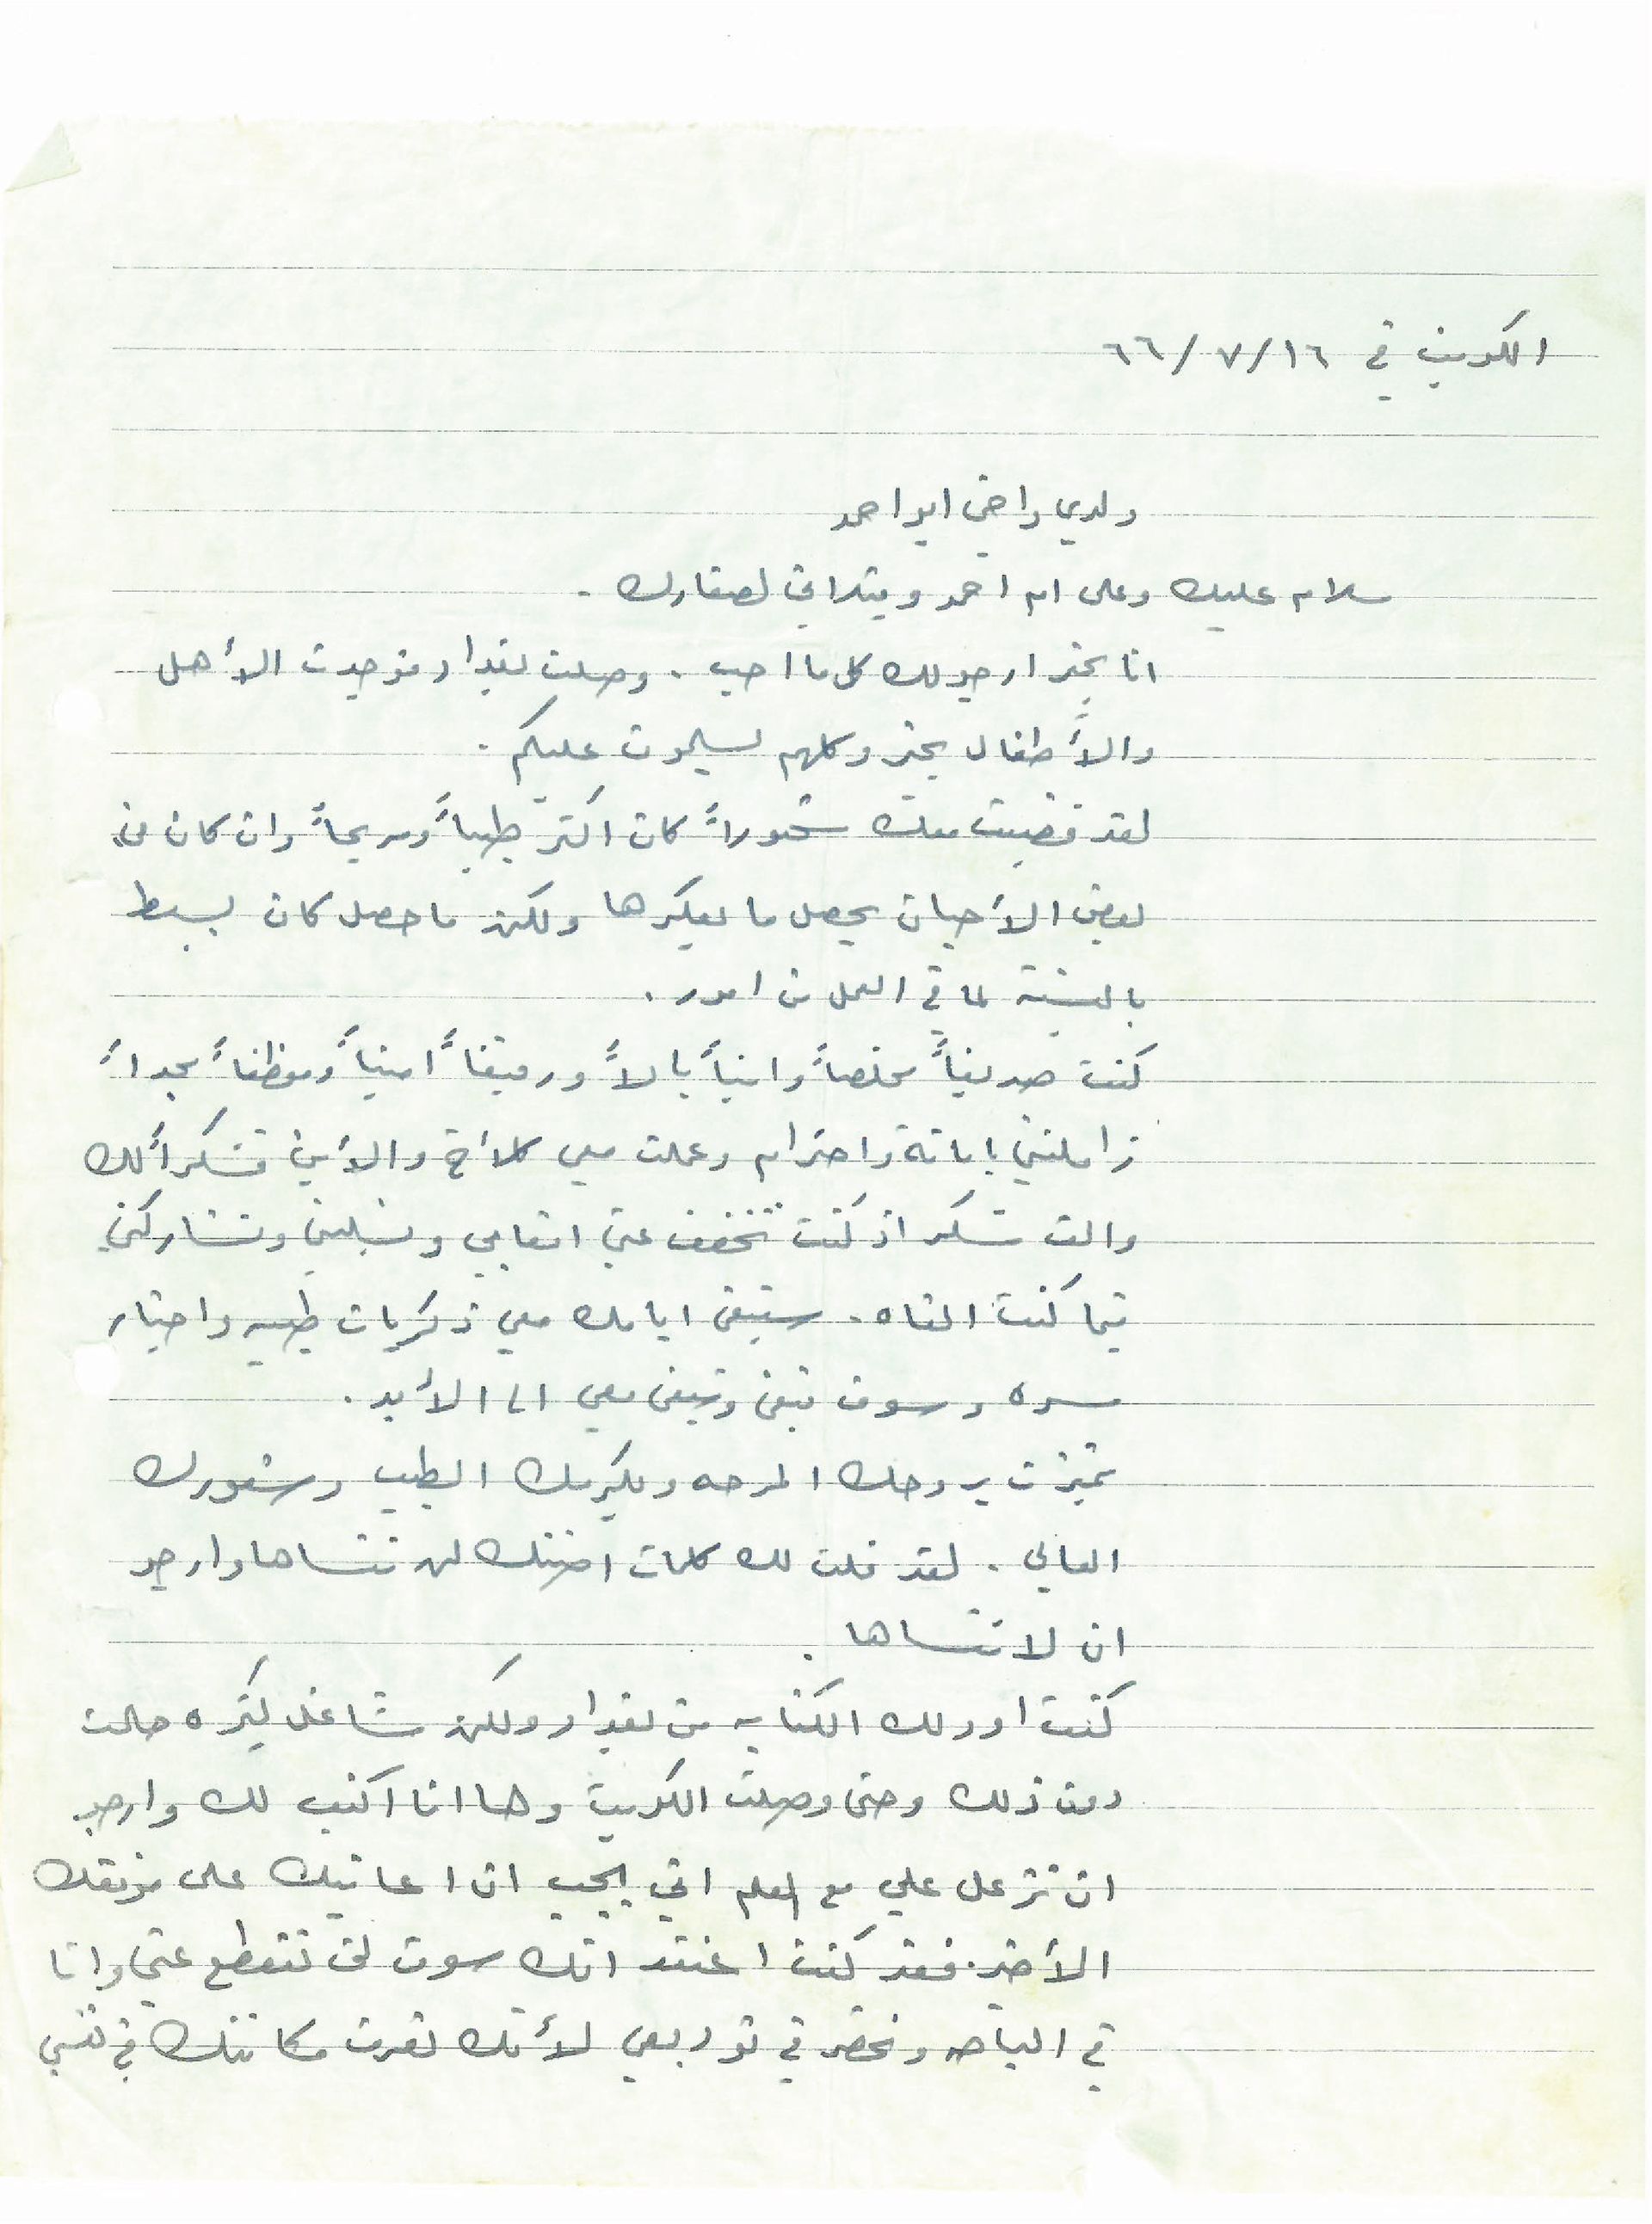 الكويت في ١٦/٧/٦٦
ولدي واخي ابو احمد
سلام عليك وعلى ام احمد وقبلاتي لصغارك.
انا بخير ارجو لك كل ما احب. وصلت بغداد فوجدت الأهل
والأطفال بخير وكلهم يسلمون عليكم.
لقد قضيت معك شهوراً كان اكثر طيباً ومريحاً وان كان في
بعض الأحيان يحصل ما يعكرها ولكن ما حصل كان بسيط
بالنسبة لما في العمل من امور.
كنت صديقاً مخلصاً وابناً باراً ورفيقاً اميناً وموظفاً مجداً
زاملتني بامانة واحترام وعملت معي كلأخ والأبن فشكراً لك
والف شكر اذ كنت تخفف عني اتعابي وتسليني وتشاركني
فيما كنت القاه. ستبقى ايامك معي ذكريات طيبه واخبار
سره وسوف تبقى وتبقى معي الى الأبد.
تميزت بروحك المرحه وبكرمك الطيب وشعورك
العالي. لقد قلت لك كلمات اظنك لن تنساها وارجو
ان لا تنساها.
كنت اود لك الكتابه من بغداد ولكن مشاغل كثيره حالت
دون ذلك وحتى وصلت الكويت وها انا اكتب لك وارجو
ان تزعل علي مع العلم اني يجب ان اعاتبك على موقفك
الأخير. فقد كنت اعتقد انك سوف لن تنقطع عني وانا
في الباحه وتحضر في توديعي لأنك تعرف مكانتك في نفسي